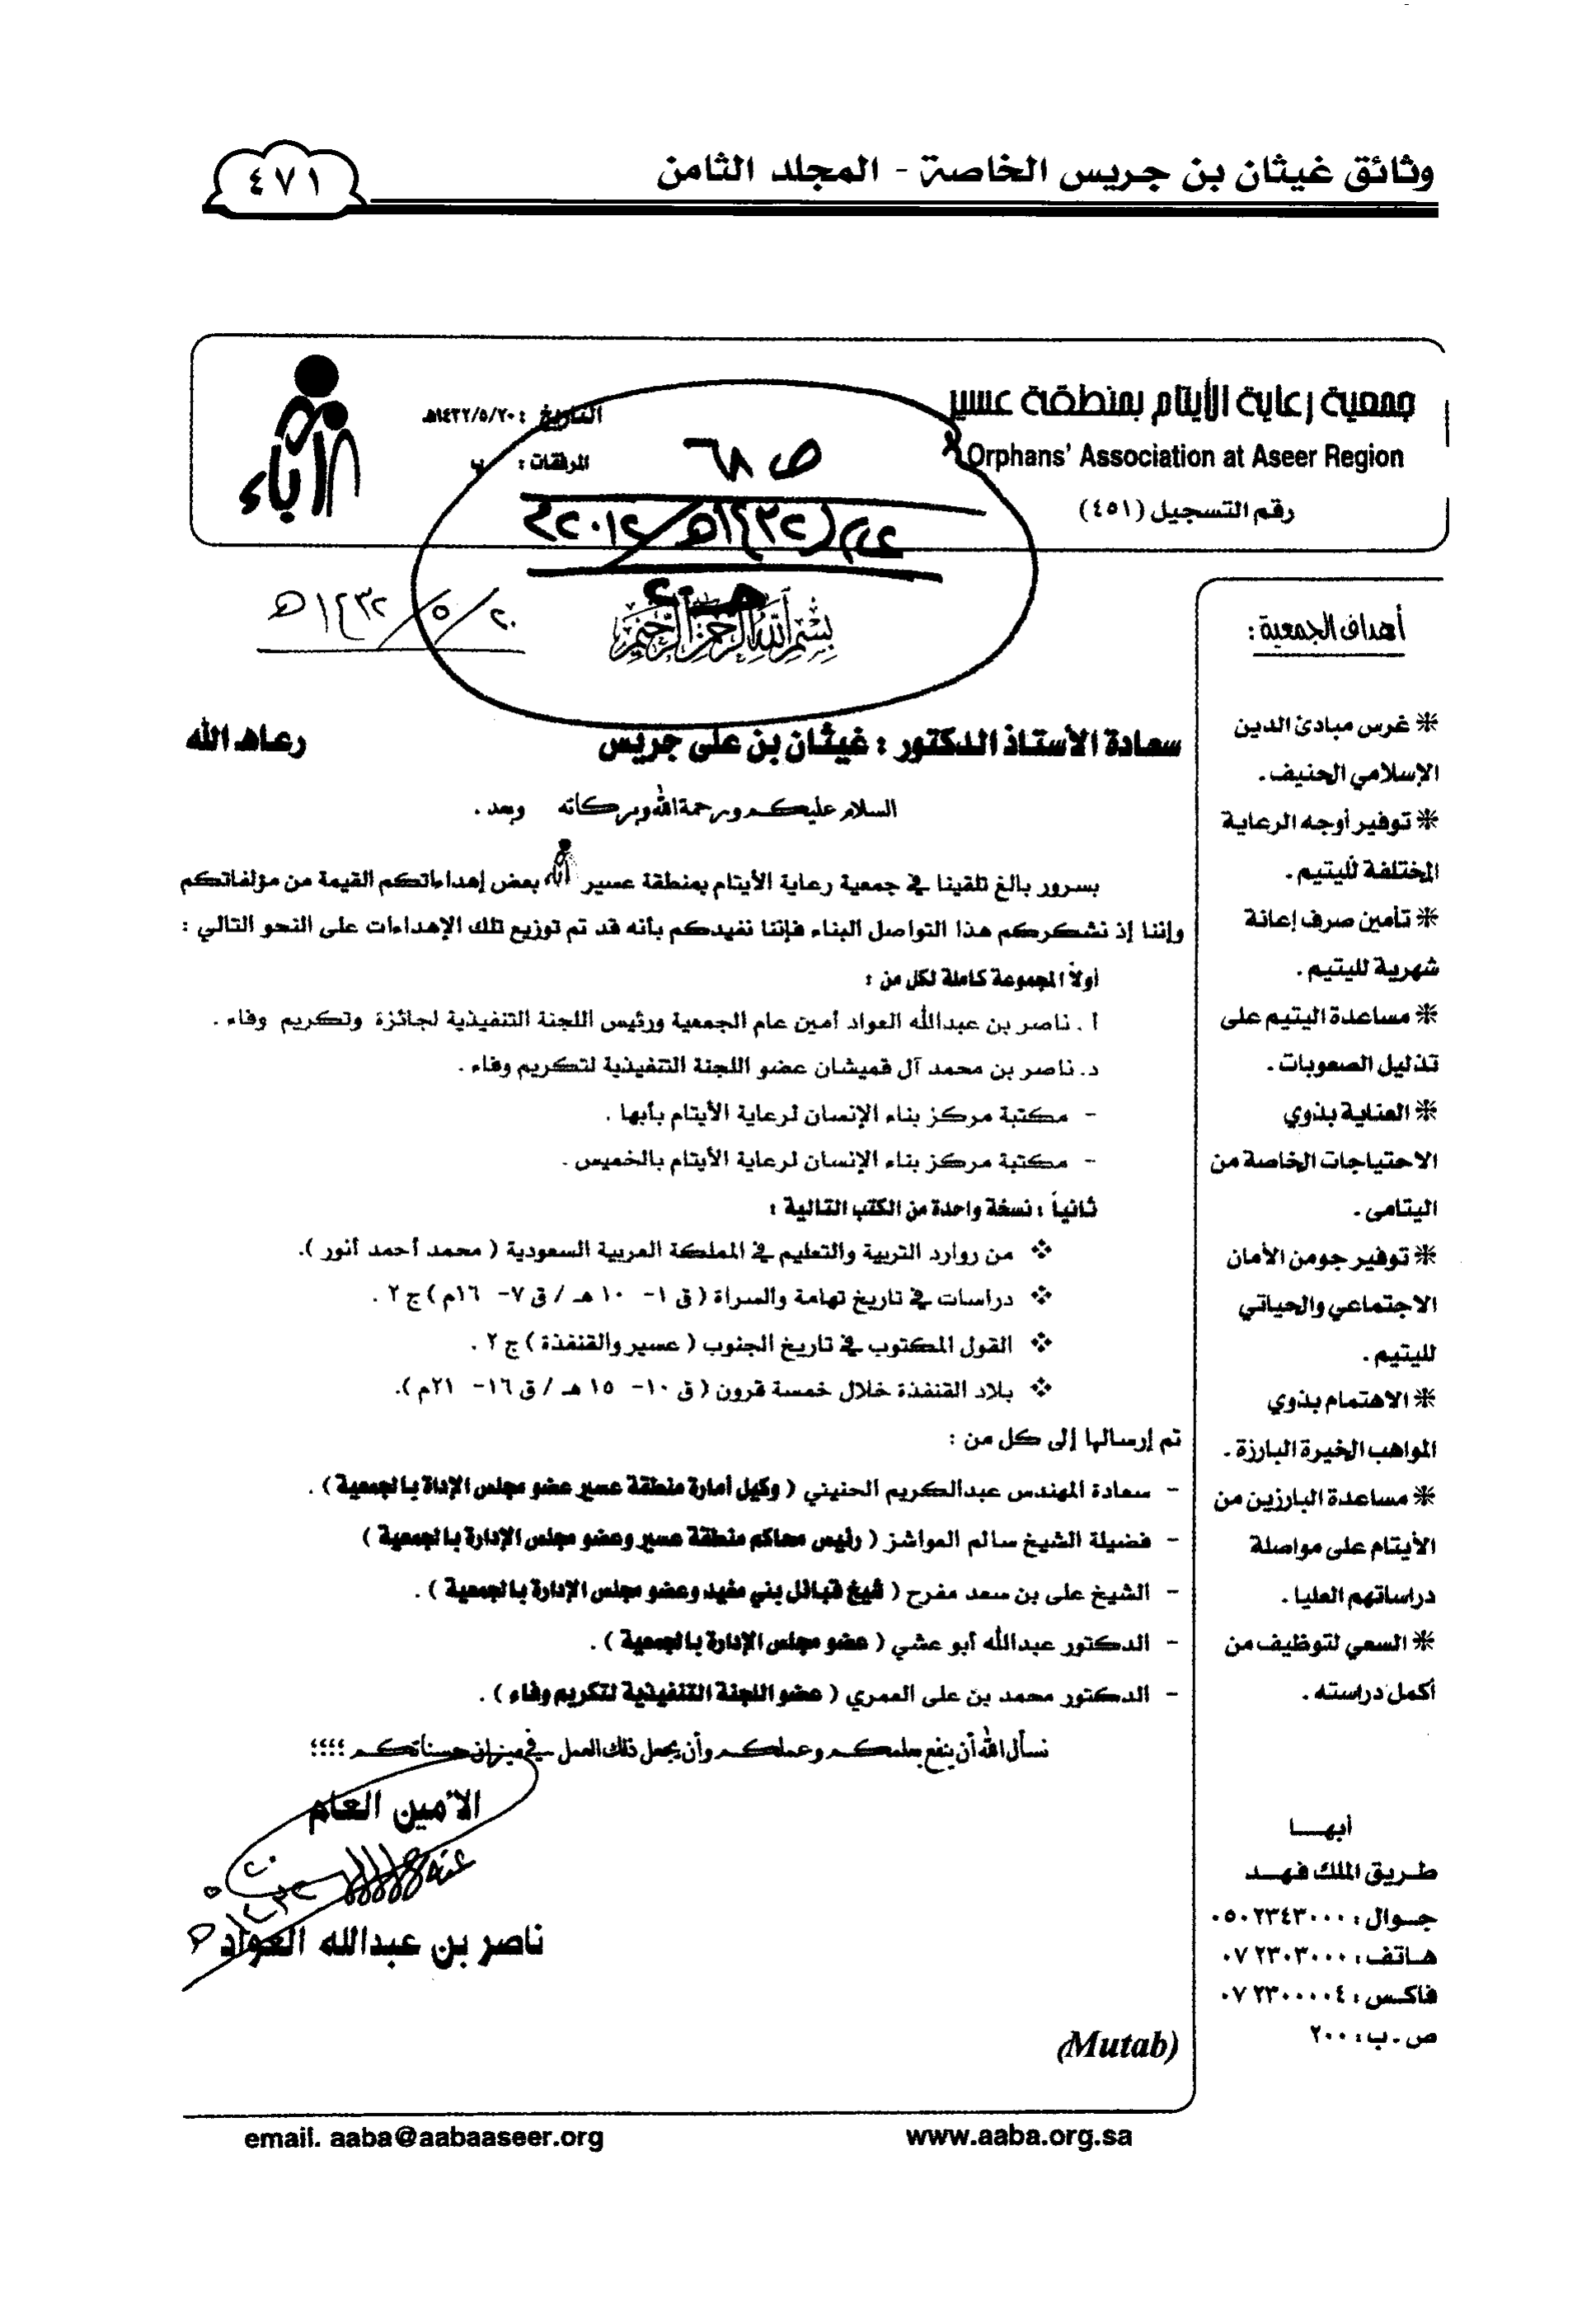 وثائق غيثان بن جريس الخاصة - المجلد الثامن
٤٧١
جمعية رعاية الأيتام بمنطقة عسير
Orphans' Association at Aseer Region
رقم التسجيل (٤٥١)
التاريخ : ١٤٣٢/٥/٢٠هـ
المرفقات :
ص ٦٨
آباء
٢٠/٥/١٤٣٢هـ
بسم الله الرحمن الرحيم
سعادة الأستاذ الدكتور : غيثان بن على جريس رعاه الله
السلام عليكم ورحمة الله وبركاته وبعد .
بسرور بالغ تلقينا في جمعية رعاية الأيتام بمنطقة عسير آباء بعض إهداءاتكم القيمة من مؤلفاتكم
وإننا إذ نشكركم هذا التواصل البناء فإننا نفيدكم بأنه قد تم توزيع تلك الإهداءات على النحو التالي :
أولاً المجموعة كاملة لكل من :
أ . ناصر بن عبدالله العواد أمين عام الجمعية ورئيس اللجنة التنفيذية لجائزة وتكريم وفاء .
د. ناصر بن محمد آل قميشان عضو اللجنة التنفيذية لتكريم وفاء .
- مكتبة مركز بناء الإنسان لرعاية الأيتام بأبها .
- مكتبة مركز بناء الإنسان لرعاية الأيتام بالخميس .
ثانياً : نسخة واحدة من الكتب التالية :
❖ من روارد التربية والتعليم في المملكة العربية السعودية ( محمد أحمد أنور ).
❖ دراسات في تاريخ تهامة والسراة ( ق ١- ١٠ هـ / ق ٧- ١٦م ) ج ٢ .
❖ القول المكتوب في تاريخ الجنوب ( عسير والقنفذة ) ج ٢ .
❖ بلاد القنفذة خلال خمسة قرون ( ق ١٠- ١٥ هـ / ق ١٦- ٢١م ).
تم إرسالها إلى كل من :
- سعادة المهندس عبدالكريم الحنيني ( وكيل أمارة منطقة عسير عضو مجلس الإداة بالجمعية ) .
- فضيلة الشيخ سالم العواشز ( رئيس محاكم منطقة عسير وعضو مجلس الإدارة بالجمعية )
- الشيخ على بن سعد مفرح ( شيخ قبائل بني مفيد وعضو مجلس الإدارة بالجمعية ) .
- الدكتور عبدالله أبو عشي ( عضو مجلس الإدارة بالجمعية ) .
- الدكتور محمد بن على العمري ( عضو اللجنة التنفيذية لتكريم وفاء ) .
نسأل الله أن ينفع بعلمكم وعملكم وأن يجعل ذلك العمل في ميزان حسناتكم ؛؛؛؛
الأمين العام
ناصر بن عبدالله العواد
(Mutab)
أهداف الجمعية :
❊ غرس مبادئ الدين
الإسلامي الحنيف .
❊ توفير أوجه الرعاية
المختلفة لليتيم .
❊ تأمين صرف إعانة
شهرية لليتيم .
❊ مساعدة اليتيم على
تذليل الصعوبات .
❊ العناية بذوي
الاحتياجات الخاصة من
اليتامى .
❊ توفير جو من الأمان
الاجتماعي والحياتي
لليتيم .
❊ الاهتمام بذوي
المواهب الخيرة البارزة .
❊ مساعدة البارزين من
الأيتام على مواصلة
دراساتهم العليا .
❊ السعي لتوظيف من
أكمل دراسته .
أبهـــا
طـريق الملك فهـد
جـوال : ٠٥٠٢٣٤٣٠٠٠
هـاتف : ٠٧٢٣٠٣٠٠٠
فاكـس : ٠٧٢٣٠٠٠٠٤
ص . ب : ٢٠٠
email. aaba@aabaaseer.org
www.aaba.org.sa